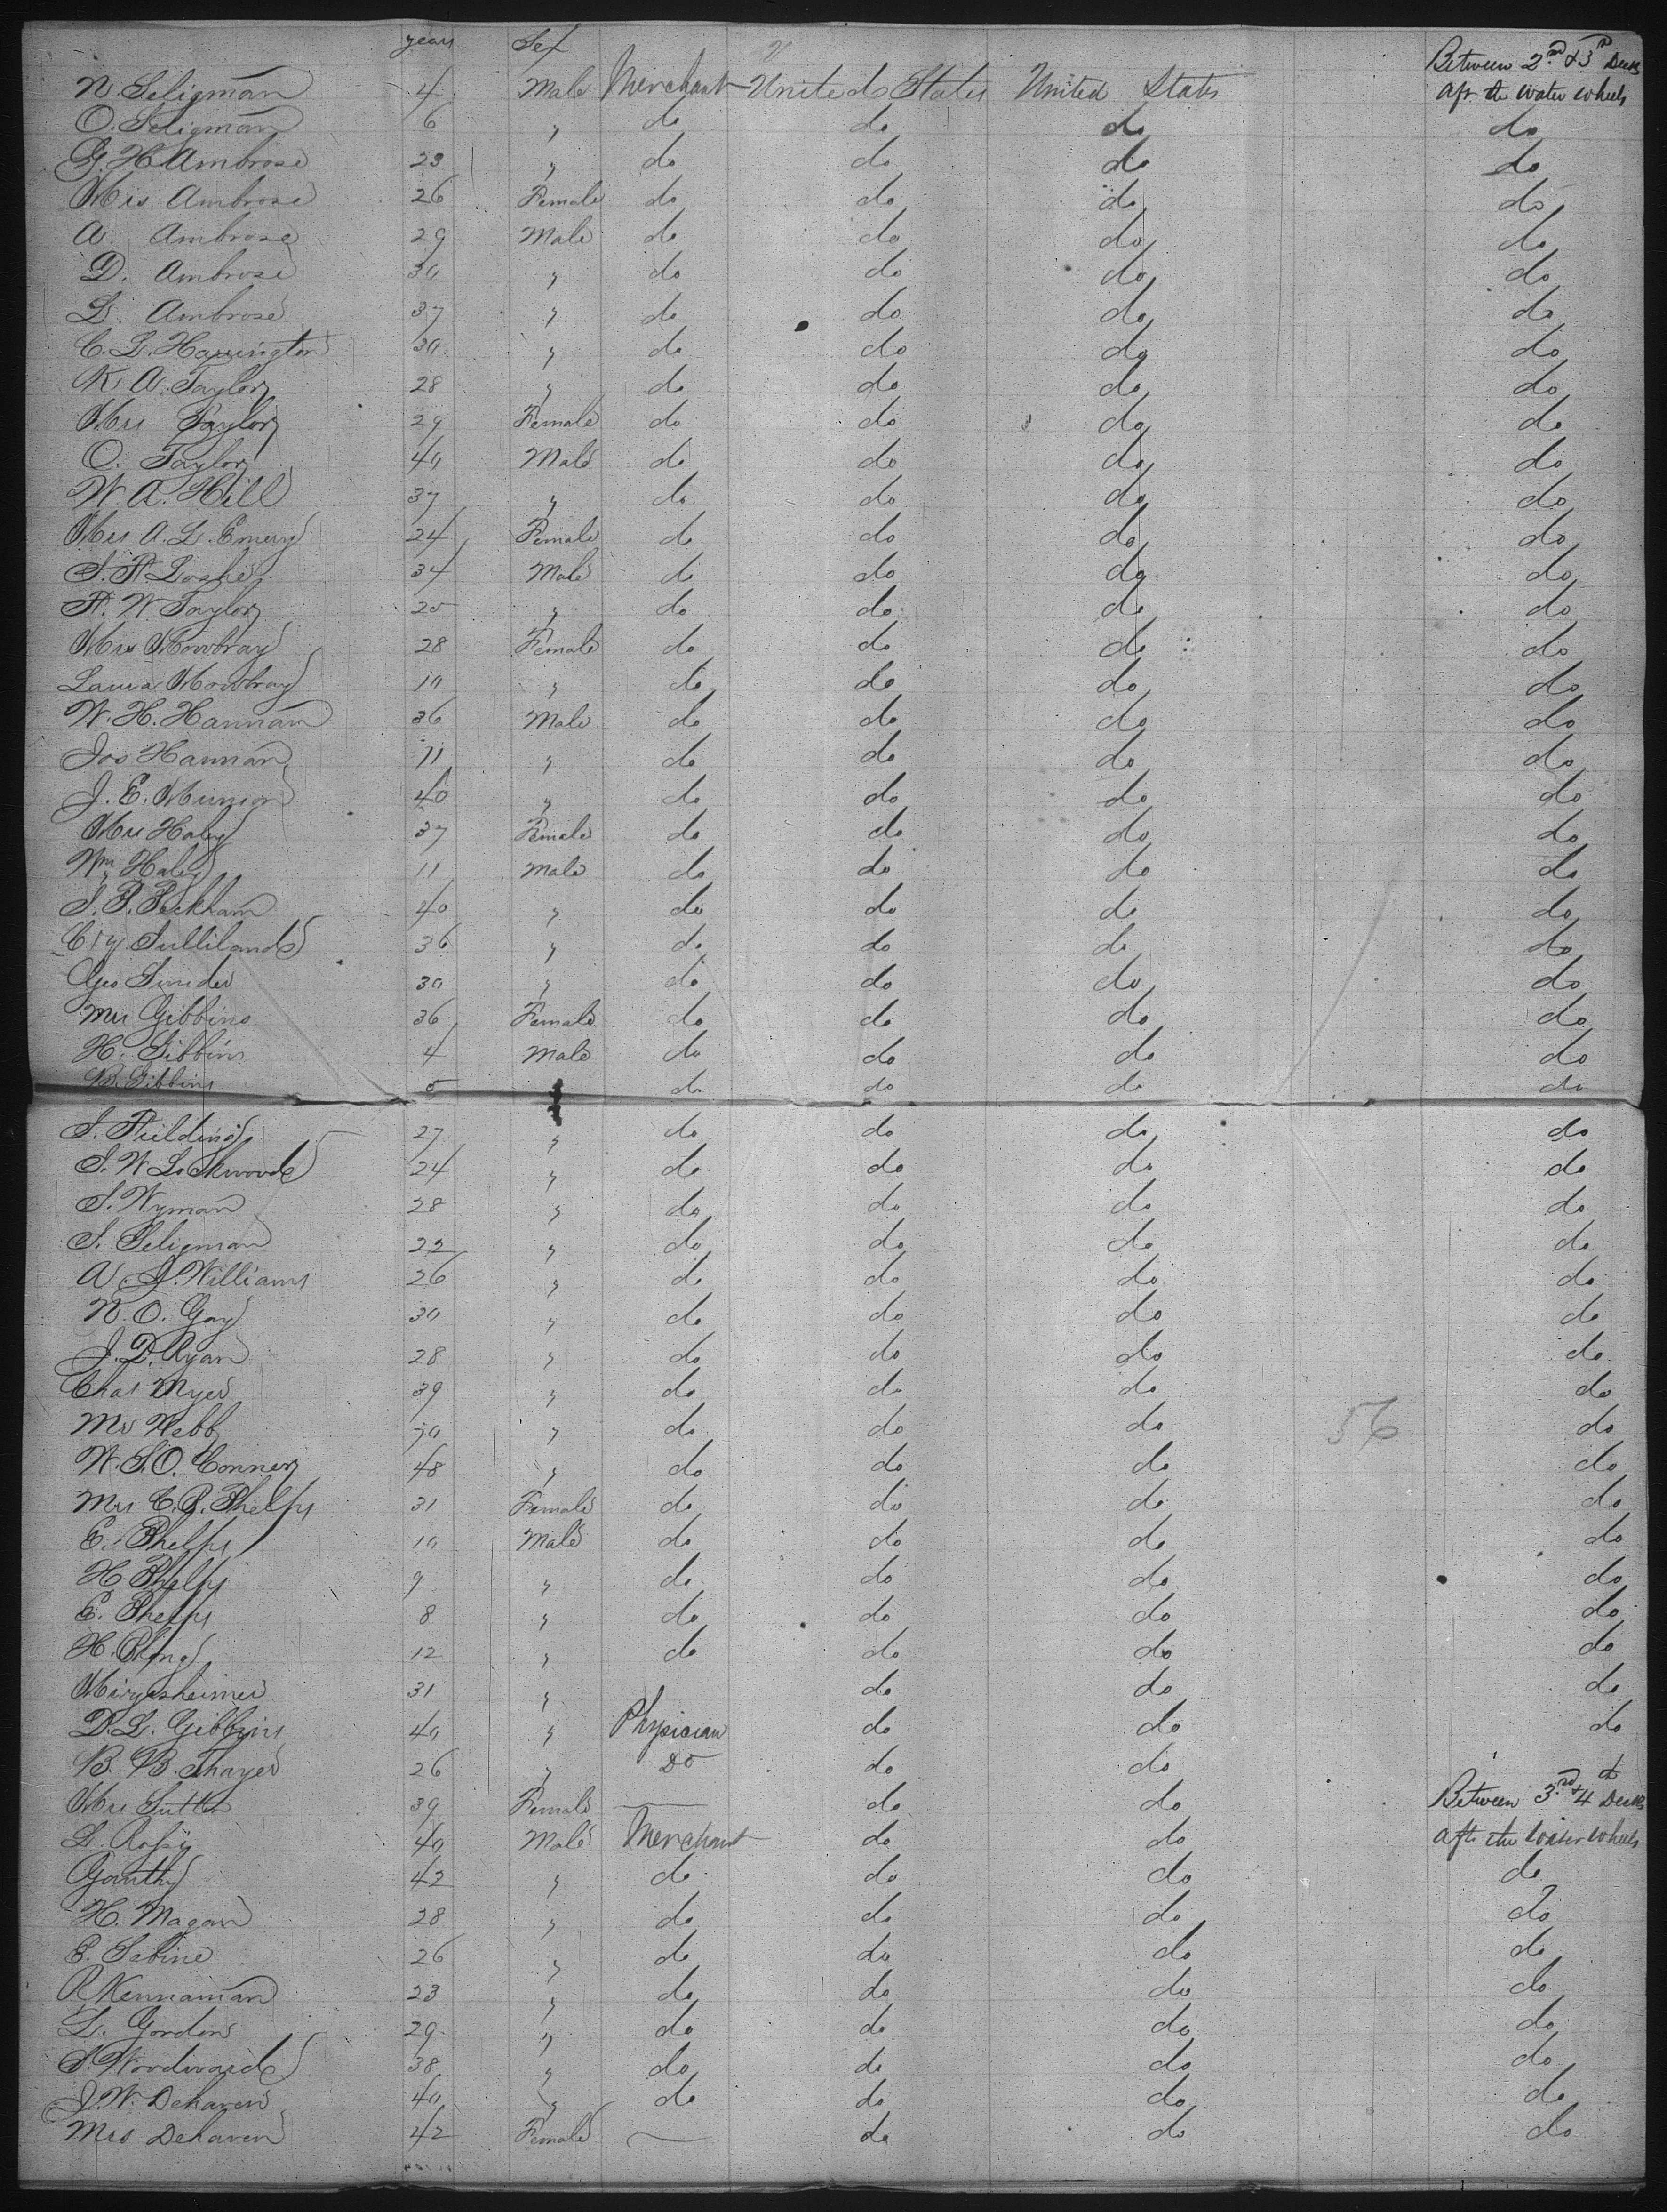 years Sex
Between 2nd & 3rd Decks
N. Seligman 4 Male Merchant United States United States aft the water wheels
O. Seligman 6 " do do do do
G. H. Ambrose 23 " do do do do
Mrs Ambrose 26 Female do do do do
A. Ambrose 29 Male do do do do
D. Ambrose 30 " do do do do
L. Ambrose 37 " do do do do
C. L. Harrington 30 " do do do do
K. A. Taylor 28 " do do do do
Mrs Taylor 29 Female do do do do
O. Taylor 40 Male do do do do
W. A. Hill 37 " do do do do
Mrs A. L. Emery 24 Female do do do do
S. F. Loshe 34 Male do do do do
F. W. Taylor 25 " do do do do
Mrs Mowbray 28 Female do do do do
Laura Mowbray 10 " do do do do
W. H. Hannan 36 Male do do do do
Jos Hannan 11 " do do do do
J. E. Munson 40 " do do do do
Mrs Haley 37 Female do do do do
Wm Haley 11 Male do do do do
S. P. Peckham 40 " do do do do
36 " do do do do
Geo Snider 30 " do do do do
Mrs Gibbins 36 Female do do do do
H. Gibbins 4 Male do do do do
B. Gibbins 5 " do do do do
S. Fielding 27 " do do do do
S. W Lockwood 24 " do do do do
S. Wyman 28 " do do do do
S. Seligman 22 " do do do do
A. J. Williams 26 " do do do do
N. O. Gay 30 " do do do do
J. D. Ryan 28 " do do do do
Chas Myer 39 " do do do do
Mr Webb 30 " do do do 56 do
W. S. O. Conner 48 " do do do do
Mrs C. P. Phelps 31 Female do do do do
E. Phelps 10 Male do do do do
H Phelps 9 " do do do do
E. Phelps 8 " do do do do
H. 12 " do do do do
31 " do do do
D. L. Gibbins 40 " Physician do do do
B. B. Thayer 26 " Do do do
Mrs Sutter 39 Female — do do Between 3rd & 4th Decks
L. 40 Male Merchant do do aft the water wheels
Gauthy 42 " do do do do
H. Magan 28 " do do do do
E. Sabine 26 " do do do do
P. Kennaman 23 " do do do do
L. Gordon 29 " do do do do
S. Woodward 38 " do do do do
J. W. Dehaven 40 " do do do do
Mrs Dehaven 42 Female — do do do